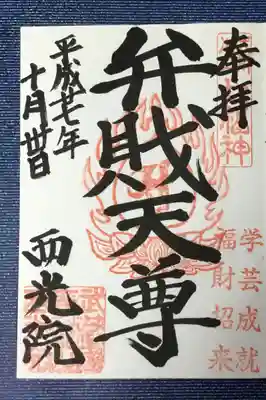 奉拝
学芸成就
福財招来
弁財天尊
平成廿七年
十月卅日
西光院